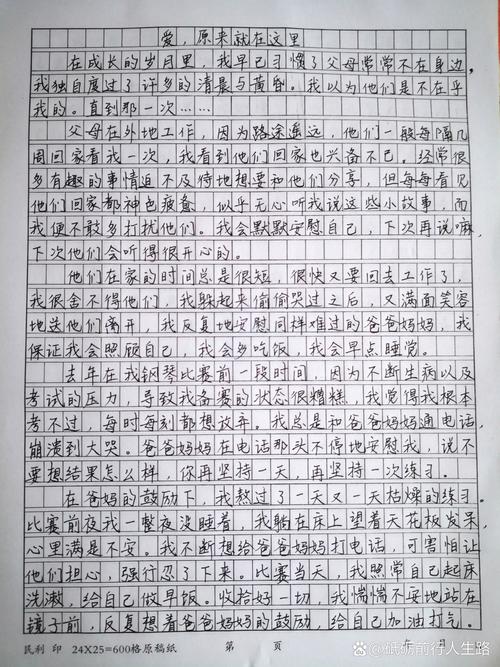 爱，原来就在这里
在成长的岁月里，我早已习惯了父母常常不在身边，
我独自度过了许多的清晨与黄昏。我以为他们是不在乎
我的。直到那一次……
父母在外地工作，因为路途遥远，他们一般每隔几
周回家看我一次，我看到他们回家也兴奋不已。经常很
多有趣的事情迫不及待地想要和他们分享，但每每看见
他们回家都神色疲惫，似乎无心听我说这些小故事，而
我便不敢多打扰他们。我会默默安慰自己，下次再说嘛，
下次他们会听得很开心的。
他们在家的时间总是很短，很快又要回去工作了，
我很舍不得他们，我躲起来偷偷哭过之后，又满面笑容
地送他们离开，我反复地安慰同样难过的爸爸妈妈，我
保证我会照顾自己，我会多吃饭，我会早点睡觉。
去年在我钢琴比赛前一段时间，因为不断生病以及
考试的压力，导致我备赛的状态很糟糕，我觉得我根本
考不过，每时每刻都想放弃。我总是和爸爸妈妈通电话，
崩溃到大哭。爸爸妈妈在电话那头不停地安慰我，说不
要想结果怎么样，你再坚持一天，再坚持一次练习。
在爸妈的鼓励下，我熬过了一天又一天枯燥的练习。
比赛前夜我一整夜没睡着，我躺在床上望着天花板发呆，
心里满是不安。我不断想给爸爸妈妈打电话，可害怕让
他们担心，强行忍了下来。比赛当天，我照常自己起床
洗漱，给自己做早饭。收拾好一切，我惴惴不安地站在
镜子前，反复想着爸爸妈妈的鼓励，给自己加油打气。
民利 印 24×25=600格原稿纸 第 页 年 月 日
@砥砺前行人生路